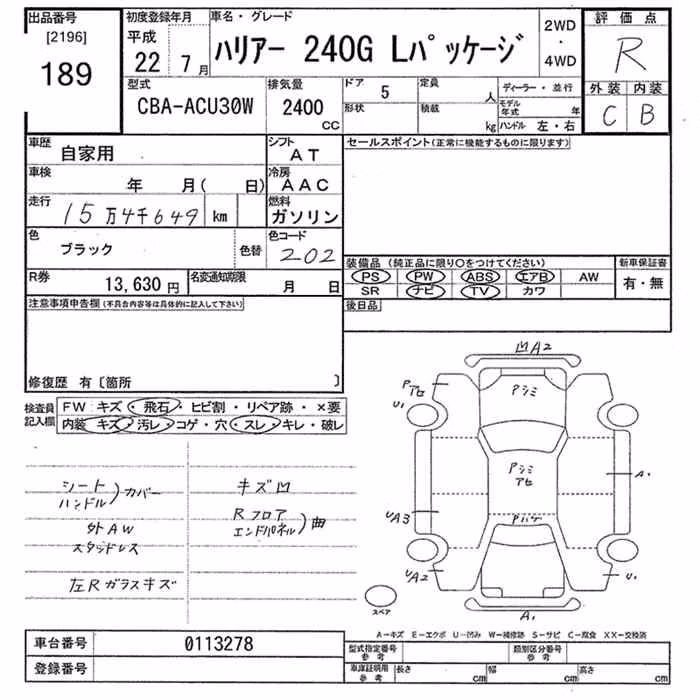 出品番号
[2196]
189
初度登録年月
平成
22 7月
車名・グレード
ハリアー 240G Lパッケージ
2WD
・
4WD
評価点
R
外装 内装
C B
型式
CBA-ACU30W
排気量
2400
CC
ドア 5
形状
定員 人
積載 kg
ディーラー・並行
モデル年式 年
ハンドル 左・右
車歴
自家用
シフト
AT
車検
年 月( 日)
冷房
AAC
走行
15万4千649 km
燃料
ガソリン
色
ブラック
色替
色コード
202
R券
13,630 円
名変通知期限
月 日
セールスポイント(正常に機能するものに限ります)
装備品 (純正品に限り○をつけてください)
PS PW ABS エアB AW
SR ナビ TV カワ
新車保証書
有・無
後日品
注意事項申告欄(不具合内容等は具体的に記入して下さい)
修復歴 有〔箇所 〕
検査員
記入欄
FW キズ・飛石・ヒビ割・リペア跡・×要
内装 キズ・汚レ・コゲ・穴・スレ・キレ・破レ
シート
ハンドル)カバー
外AW
スタッドレス
左Rガラスキズ
キズ凹
Rフロア
エンドパネル)曲
凹A2
Pアセ
Pシミ
U1
Pシミ
アセ
A1
UA3
Pハゲ
UA2
U1
スペア
A1
A-キズ E-エクボ U-凹み W-補修跡 S-サビ C-腐食 XX-交換済
車台番号 0113278
登録番号
型式指定番号
参考
類別区分番号
参考
車庫証明用
参考
長さ cm
幅 cm
高さ cm